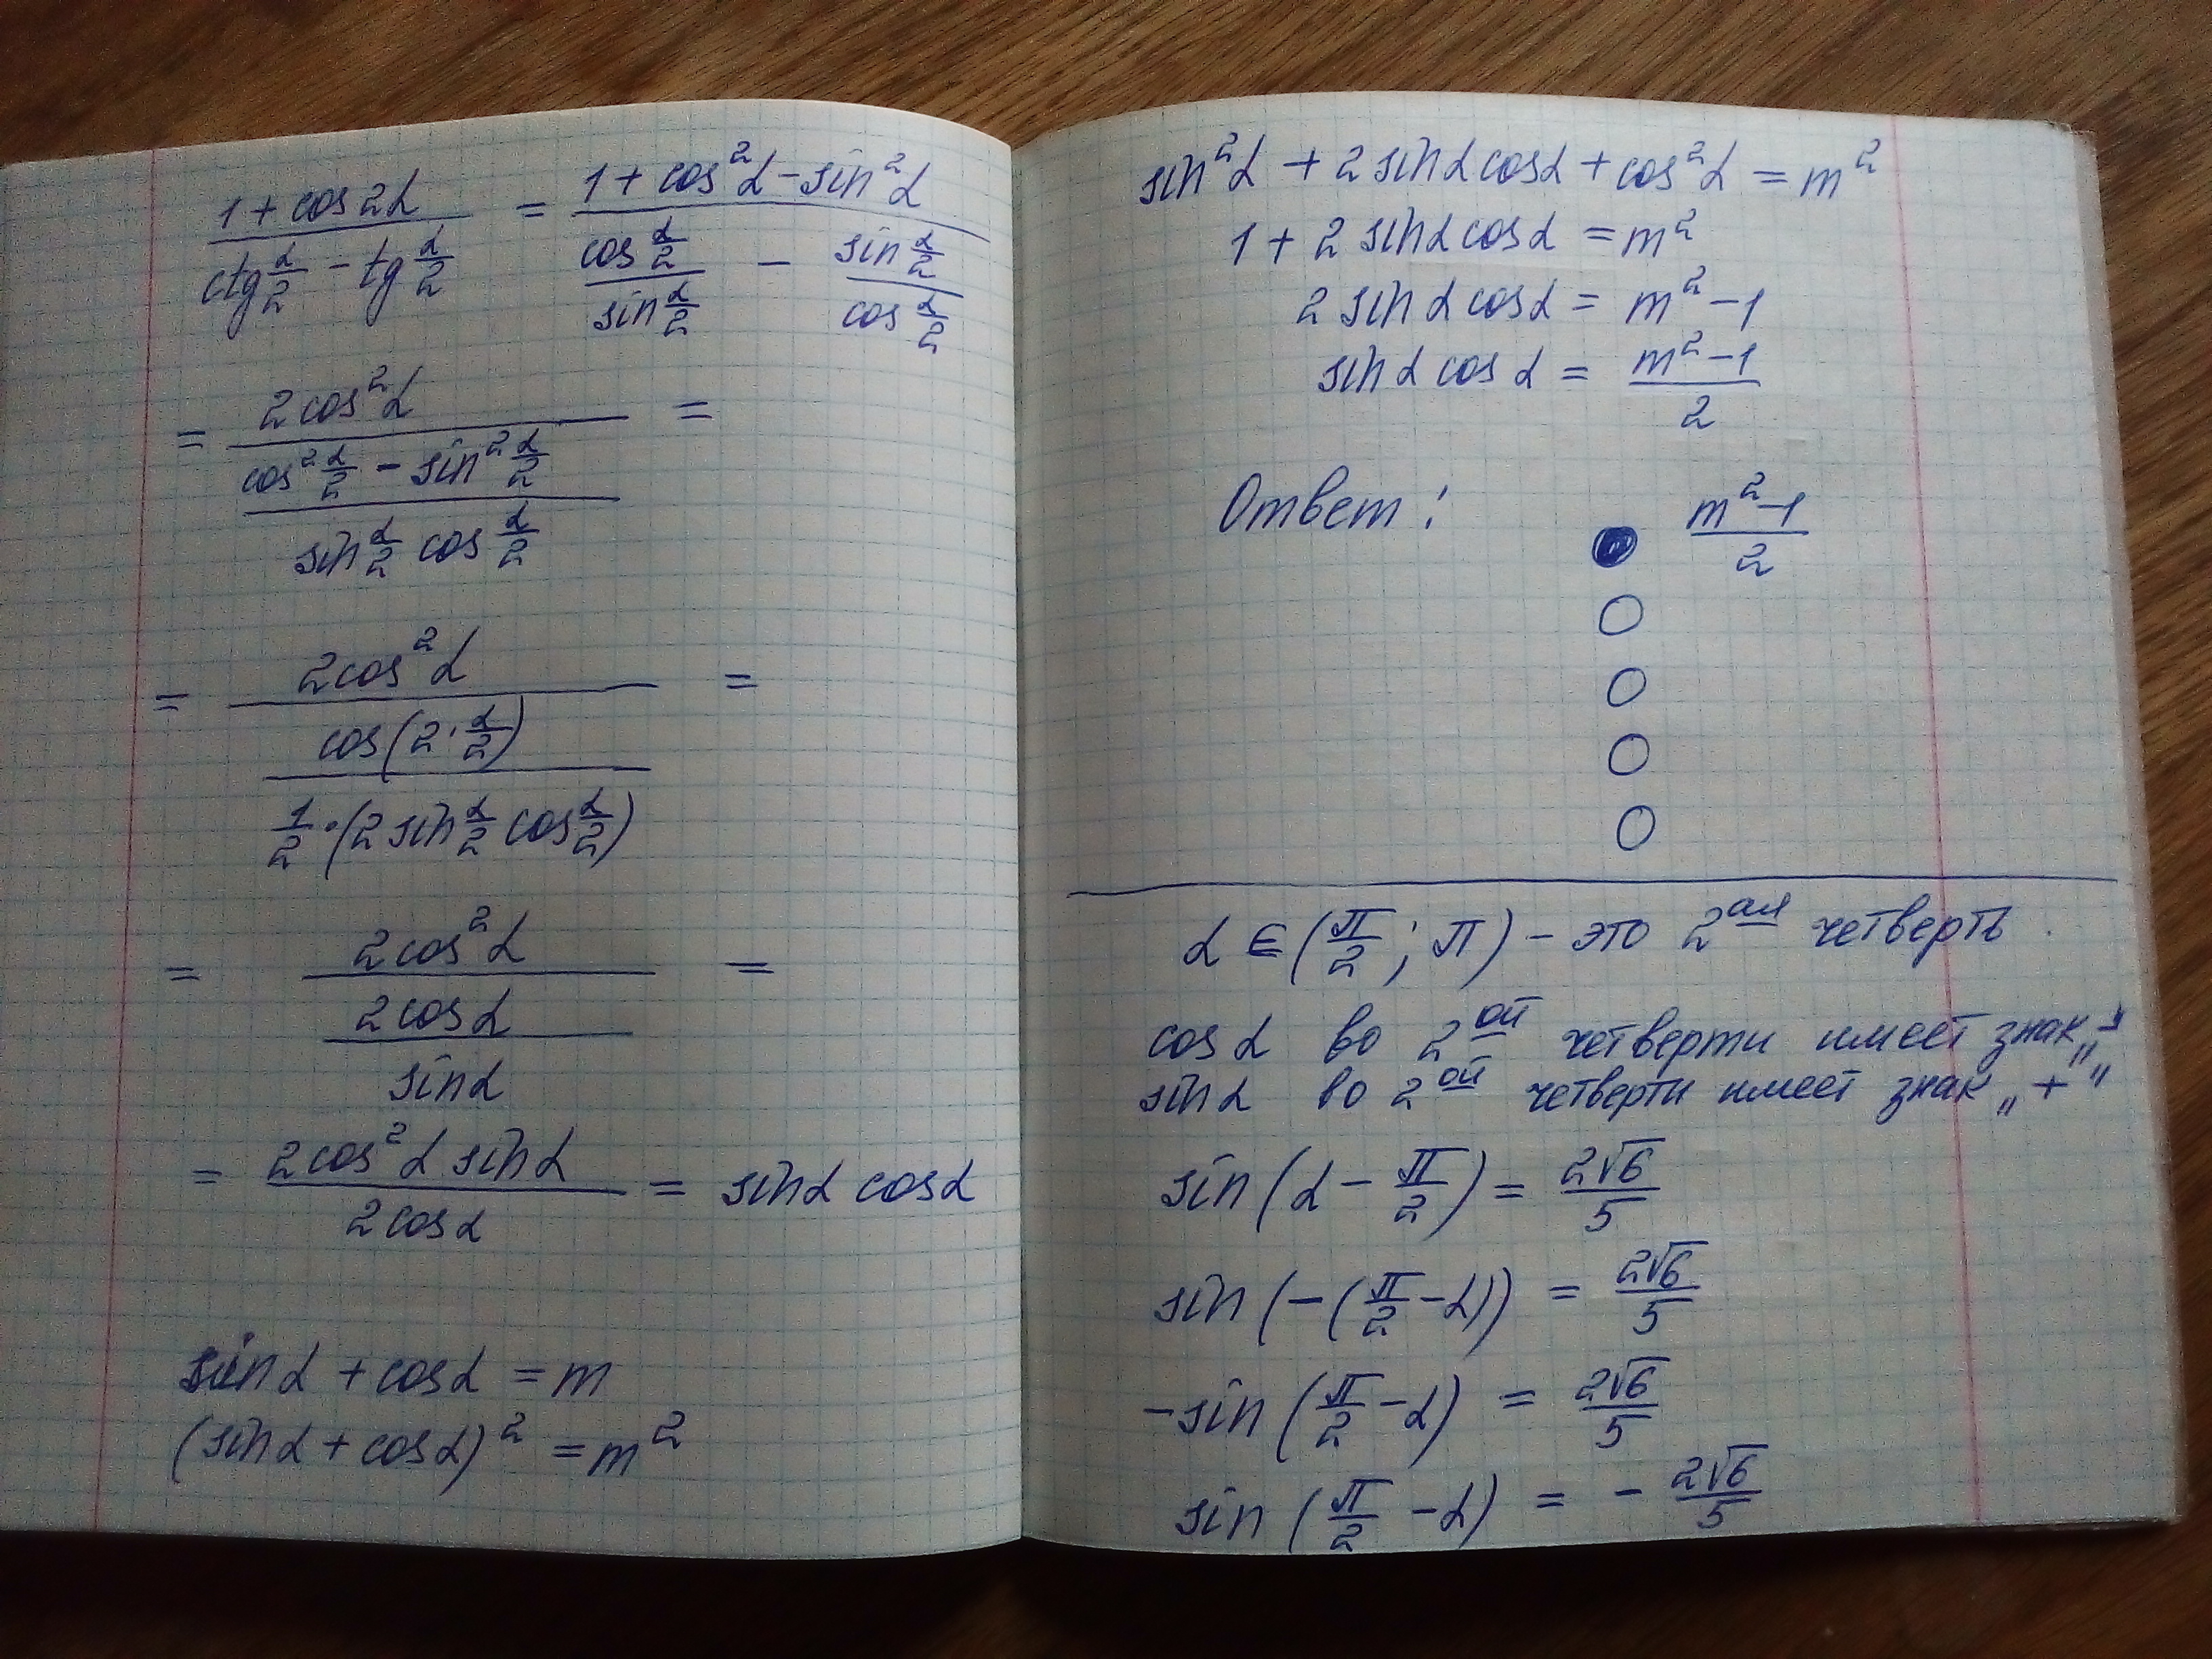 (1 + cos2α)/(ctg α/2 − tg α/2) = (1 + cos²α − sin²α)/((cos α/2)/(sin α/2) − (sin α/2)/(cos α/2))
= (2cos²α)/((cos² α/2 − sin² α/2)/(sin α/2 cos α/2)) =
= (2cos²α)/((cos(2·α/2))/(1/2·(2 sin α/2 cos α/2))) =
= (2cos²α)/((2cosα)/(sinα)) =
= (2cos²α sinα)/(2cosα) = sinα cosα
sinα + cosα = m
(sinα + cosα)² = m²
sin²α + 2sinαcosα + cos²α = m²
1 + 2 sinαcosα = m²
2 sinαcosα = m² − 1
sinα cosα = (m² − 1)/2
Ответ: (m²−1)/2
α ∈ (π/2; π) – это 2ая четверть.
cosα во 2ой четверти имеет знак „−"
sinα во 2ой четверти имеет знак „+"
sin(α − π/2) = 2√6/5
sin(−(π/2 − α)) = 2√6/5
−sin(π/2 − α) = 2√6/5
sin(π/2 − α) = − 2√6/5